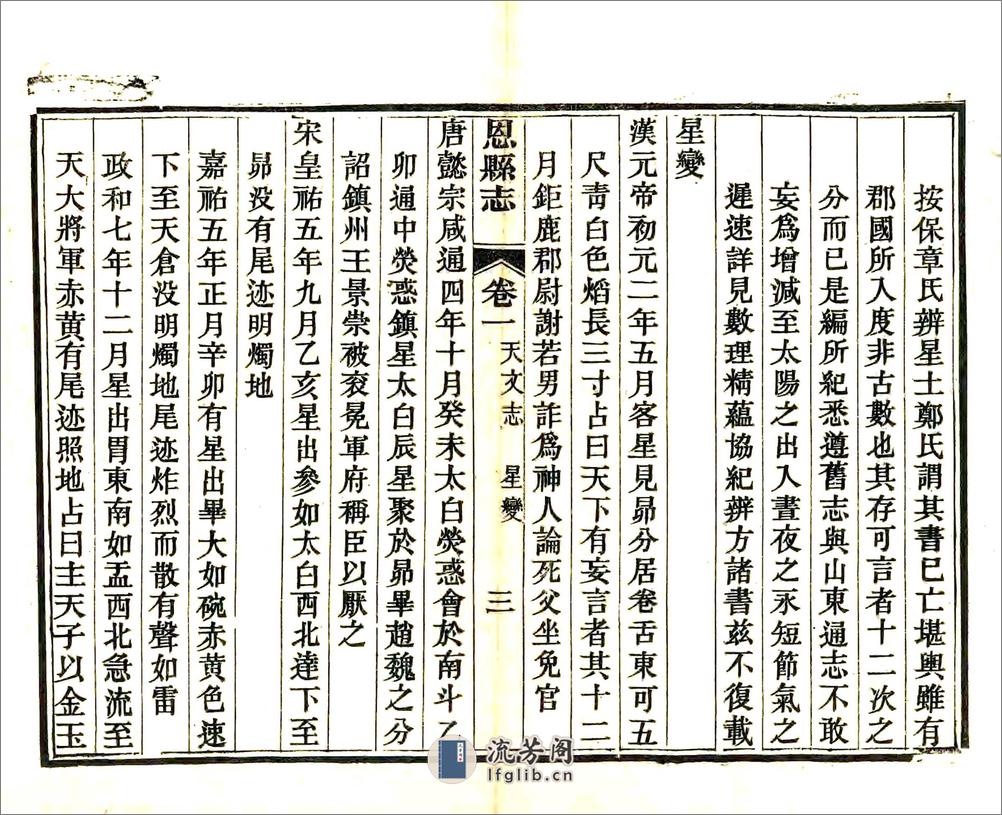 按保章氏辨星土鄭氏謂其書已亡堪輿雖有
郡國所入度非古數也其存可言者十二次之
分而已是編所紀悉遵舊志與山東通志不敢
妄爲增減至太陽之出入晝夜之永短節氣之
遲速詳見數理精蘊協紀辨方諸書茲不復載
星變
漢元帝初元二年五月客星見昴分居卷舌東可五
尺青白色熖長三寸占曰天下有妄言者其十二
月鉅鹿郡尉謝若男詐爲神人論死父坐免官
恩縣志 卷一 天文志 星變 三
唐懿宗咸通四年十月癸未太白熒惑會於南斗乙
卯通中熒惑鎮星太白辰星聚於昴畢趙魏之分
詔鎮州王景崇被袞冕軍府稱臣以厭之
宋皇祐五年九月乙亥星出參如太白西北達下至
昴没有尾迹明燭地
嘉祐五年正月辛卯有星出畢大如碗赤黄色速
下至天倉没明燭地尾迹炸烈而散有聲如雷
政和七年十二月星出胃東南如盂西北急流至
天大將軍赤黄有尾迹照地占曰主天子以金玉
流芳阁
lfglib.cn